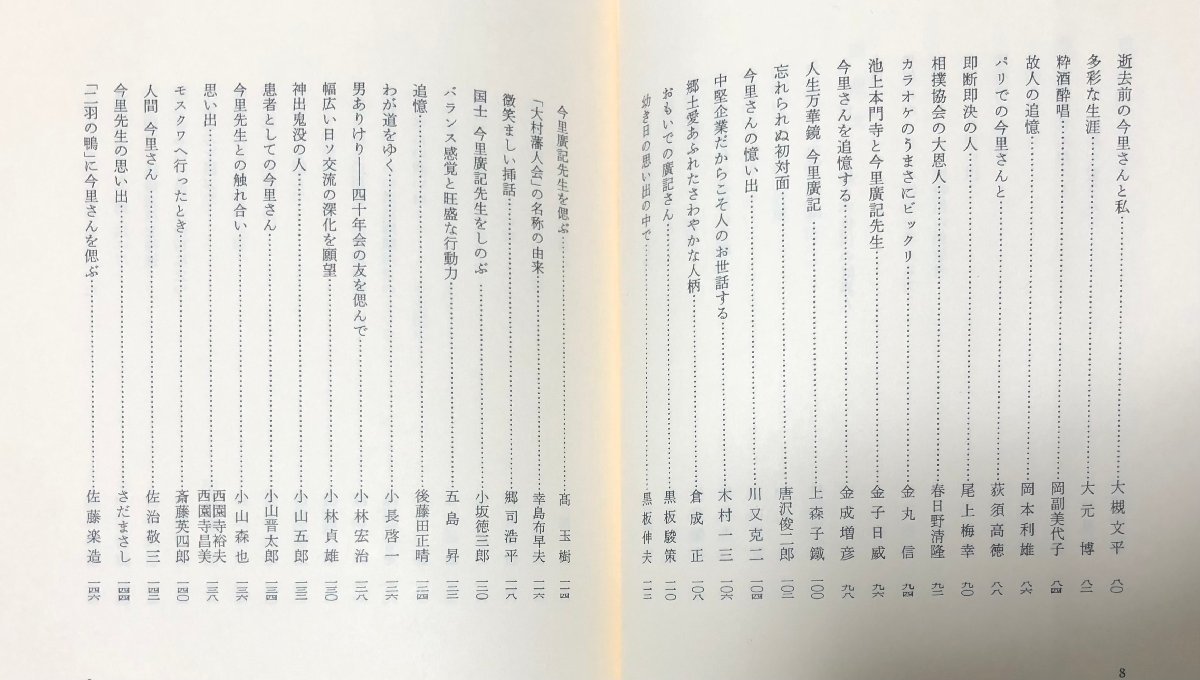 逝去前の今里さんと私……大槻文平 八〇
多彩な生涯……大元 博 八二
粋酒酔唱……岡副美代子 八四
故人の追憶……岡本利雄 八六
パリでの今里さんと……荻須高徳 八八
即断即決の人……尾上梅幸 九〇
相撲協会の大恩人……春日野清隆 九二
カラオケのうまさにビックリ……金丸 信 九四
池上本門寺と今里廣記先生……金子日威 九六
今里さんを追憶する……金成増彦 九八
人生万華鏡 今里廣記……上森子鐵 一〇〇
忘れられぬ初対面……唐沢俊二郎 一〇二
今里さんの憶い出……川又克二 一〇四
中堅企業だからこそ人のお世話する……木村一三 一〇六
郷土愛あふれたさわやかな人柄……倉成 正 一〇八
おもいでの廣記さん……黒板駿策 一一〇
幼き日の思い出の中で……黒板伸夫 一一二
8
今里廣記先生を偲ぶ……高 玉樹 一一四
「大村藩人会」の名称の由来……幸島布早夫 一一六
微笑ましい挿話……郷司浩平 一一八
国士 今里廣記先生をしのぶ……小坂徳三郎 一二〇
バランス感覚と旺盛な行動力……五島 昇 一二二
追憶……後藤田正晴 一二四
わが道をゆく……小長啓一 一二六
男ありけり――四十年会の友を偲んで……小林宏治 一二八
幅広い日ソ交流の深化を願望……小林貞雄 一三〇
神出鬼没の人……小山五郎 一三二
患者としての今里さん……小山晋太郎 一三四
今里先生との触れ合い……小山森也 一三六
思い出……西園寺裕夫 西園寺昌美 一三八
モスクワへ行ったとき……斎藤英四郎 一四〇
人間 今里さん……佐治敬三 一四二
今里先生の思い出……さだまさし 一四四
「二羽の鴨」に今里さんを偲ぶ……佐藤楽造 一四六